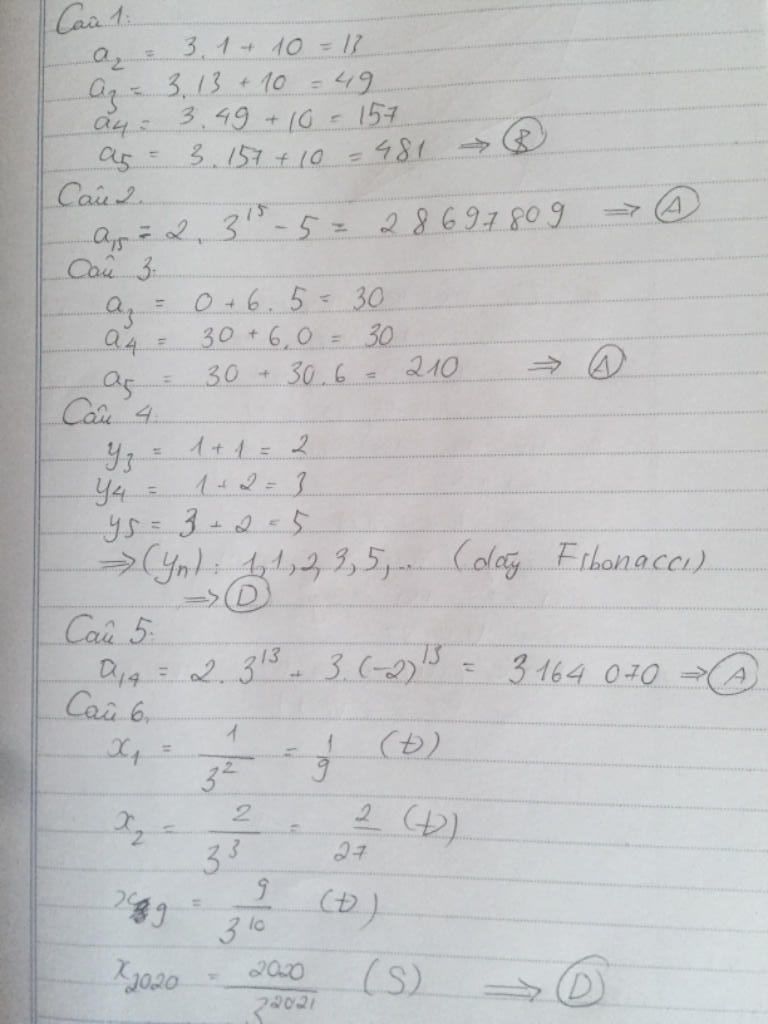 Câu 1:
a₂ = 3.1 + 10 = 13
a₃ = 3.13 + 10 = 49
a₄ = 3.49 + 10 = 157
a₅ = 3.157 + 10 = 481 ⇒ B
Câu 2.
a₁₅ = 2. 3¹⁵ - 5 = 28697809 ⇒ A
Câu 3.
a₃ = 0 + 6.5 = 30
a₄ = 30 + 6.0 = 30
a₅ = 30 + 30.6 = 210 ⇒ A
Câu 4.
y₃ = 1 + 1 = 2
y₄ = 1 + 2 = 3
y₅ = 3 + 2 = 5
⇒ (yₙ): 1, 1, 2, 3, 5, ... (dãy Fibonacci)
⇒ D
Câu 5.
a₁₄ = 2.3¹³ + 3.(-2)¹³ = 3164070 ⇒ A
Câu 6.
x₁ = 1/3² = 1/9 (Đ)
x₂ = 2/3³ = 2/27 (Đ)
x₉ = 9/3¹⁰ (Đ)
x₂₀₂₀ = 2020/3²⁰²¹ (S) ⇒ D